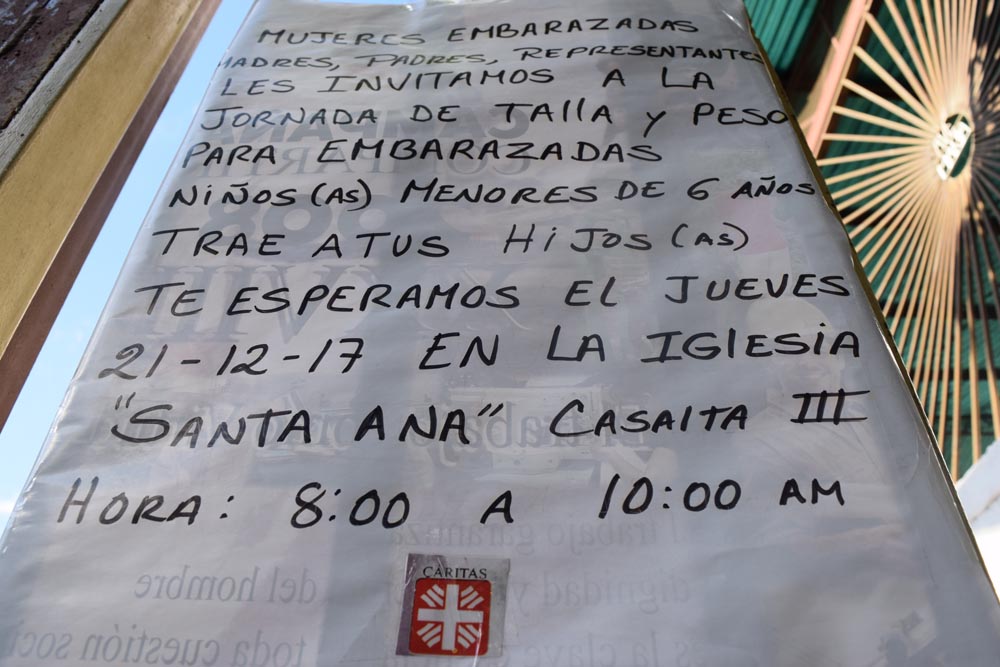 MUJERES EMBARAZADAS
MADRES, PADRES, REPRESENTANTES
LES INVITAMOS A LA
JORNADA DE TALLA Y PESO
PARA EMBARAZADAS
NIÑOS(AS) MENORES DE 6 AÑOS
TRAE A TUS HIJOS(AS)
TE ESPERAMOS EL JUEVES
21-12-17 EN LA IGLESIA
"SANTA ANA" CASAITA III
HORA: 8:00 A 10:00 AM
CARITAS
trabajo garantiza
dignidad y
del hombre
es la clave
toda cuestión soci